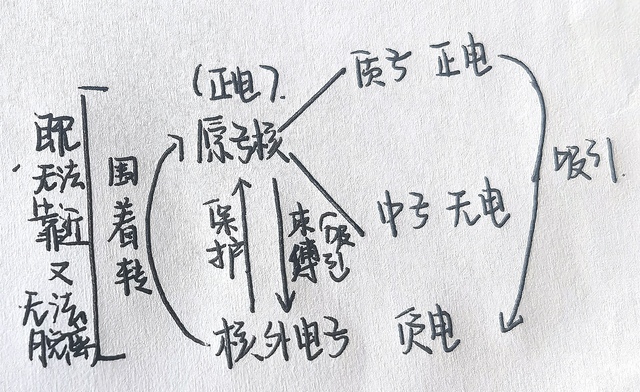 (正电).
原子核
质子 正电
中子 无电
吸引
围着转
既无法靠近又无法脱离
保护
束缚(吸引)
核外电子 负电